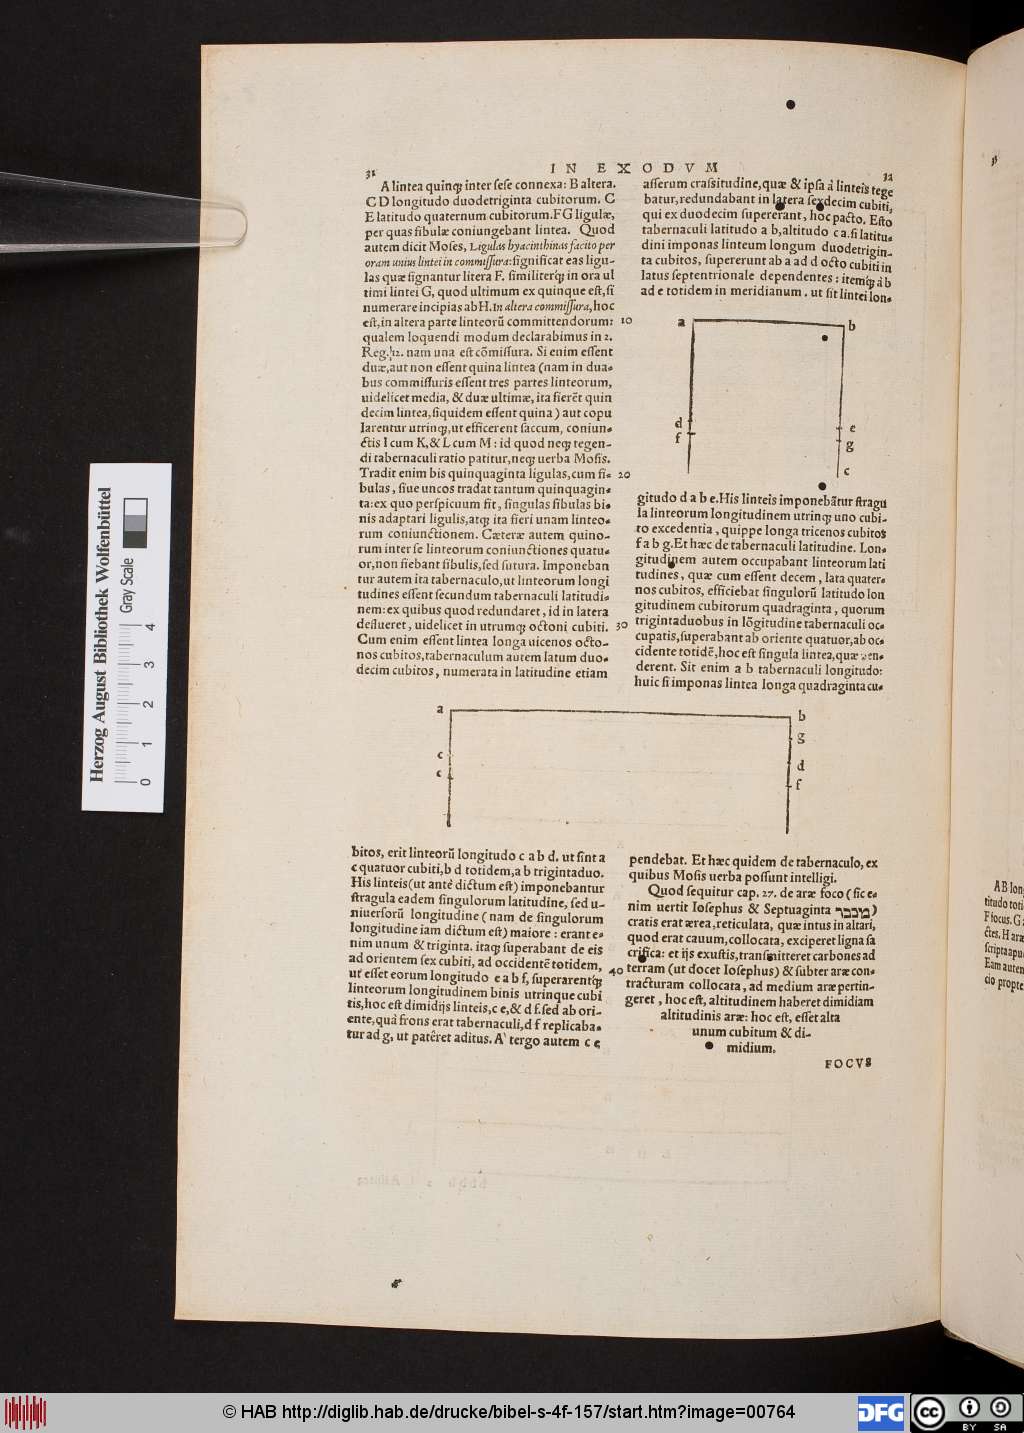 IN EXODVM
31
A lintea quinq; inter sese connexa: B altera.
C D longitudo duodetriginta cubitorum. C
E latitudo quaternum cubitorum. F G ligulæ,
per quas fibulæ coniungebant lintea. Quod
autem dicit Moses, Ligulas hyacinthinas facito per
oram unius lintei in commissura: significat eas ligu-
las quæ signantur litera F. similiterq́; in ora ul
timi lintei G, quod ultimum ex quinque est, si
numerare incipias ab H. In altera commissura, hoc
est, in altera parte linteorũ committendorum: 10
qualem loquendi modum declarabimus in 2.
Reg. 12. nam una est cõmissura. Si enim essent
duæ, aut non essent quina lintea (nam in dua-
bus commissuris essent tres partes linteorum,
uidelicet media, & duæ ultimæ, ita fierẽt quin
decim lintea, siquidem essent quina) aut copu
larentur utrinq;, ut efficerent saccum, coniun-
ctis I cum K, & L cum M: id quod neq; tegen-
di tabernaculi ratio patitur, neq; uerba Mosis.
Tradit enim bis quinquaginta ligulas, cum fi- 20
bulas, siue uncos tradat tantum quinquagin-
ta: ex quo perspicuum fit, singulas fibulas bi-
nis adaptari ligulis, atq; ita fieri unam linteo-
rum coniunctionem. Cæteræ autem quino-
rum inter se linteorum coniunctiones quatu-
or, non fiebant fibulis, sed sutura. Imponeban
tur autem ita tabernaculo, ut linteorum longi
tudines essent secundum tabernaculi latitudi-
nem: ex quibus quod redundaret, id in latera
deflueret, uidelicet in utrumq; octoni cubiti. 30
Cum enim essent lintea longa uicenos octo-
nos cubitos, tabernaculum autem latum duo-
decim cubitos, numerata in latitudine etiam
32
asserum crassitudine, quæ & ipsa à linteis tege
batur, redundabant in latera sexdecim cubiti,
qui ex duodecim supererant, hoc pacto. Esto
tabernaculi latitudo a b, altitudo c a. si latitu-
dini imponas linteum longum duodetrigin-
ta cubitos, supererunt ab a ad d octo cubiti in
latus septentrionale dependentes: itemq́; à b
ad e totidem in meridianum. ut sit lintei lon-
a
b
d
f
e
g
c
gitudo d a b e. His linteis imponebãtur stragu
la linteorum longitudinem utrinq; uno cubi-
to excedentia, quippe longa tricenos cubitos
f a b g. Et hæc de tabernaculi latitudine. Lon-
gitudinem autem occupabant linteorum lati
tudines, quæ cum essent decem, lata quater-
nos cubitos, efficiebat singulorũ latitudo lon
gitudinem cubitorum quadraginta, quorum
trigintaduobus in lõgitudine tabernaculi oc-
cupatis, superabant ab oriente quatuor, ab oc-
cidente totidẽ, hoc est singula lintea, quæ pen-
derent. Sit enim a b tabernaculi longitudo:
huic si imponas lintea longa quadraginta cu-
a
b
g
c
d
c
f
bitos, erit linteorũ longitudo c a b d. ut sint a
c quatuor cubiti, b d totidem, a b trigintaduo.
His linteis (ut antè dictum est) imponebantur
stragula eadem singulorum latitudine, sed u-
niuersorũ longitudine (nam de singulorum
longitudine iam dictum est) maiore: erant e-
nim unum & triginta. itaq; superabant de eis
ad orientem sex cubiti, ad occidentẽ totidem,
ut esset eorum longitudo e a b f, superarentq́; 40
linteorum longitudinem binis utrinque cubi
tis, hoc est dimidijs linteis, c e, & d f. sed ab ori-
ente, quà frons erat tabernaculi, d f replicaba-
tur ad g, ut patêret aditus. A' tergo autem c e
pendebat. Et hæc quidem de tabernaculo, ex
quibus Mosis uerba possunt intelligi.
Quod sequitur cap. 27. de aræ foco (sic e-
nim uertit Iosephus & Septuaginta מכבר)
cratis erat ærea, reticulata, quæ intus in altari,
quod erat cauum, collocata, exciperet ligna sa
crifica: et ijs exustis, transmitteret carbones ad
terram (ut docet Iosephus) & subter aræ con-
tracturam collocata, ad medium aræ pertin-
geret, hoc est, altitudinem haberet dimidiam
altitudinis aræ: hoc est, esset alta
unum cubitum & di-
midium.
FOCVS
A B lon
titudo toti
F focus. G
ctes. H aræ
scripta apu
Eam autem
cio propte
Herzog August Bibliothek Wolfenbüttel
Gray Scale
0 1 2 3 4
© HAB http://diglib.hab.de/drucke/bibel-s-4f-157/start.htm?image=00764
DFG
cc BY SA